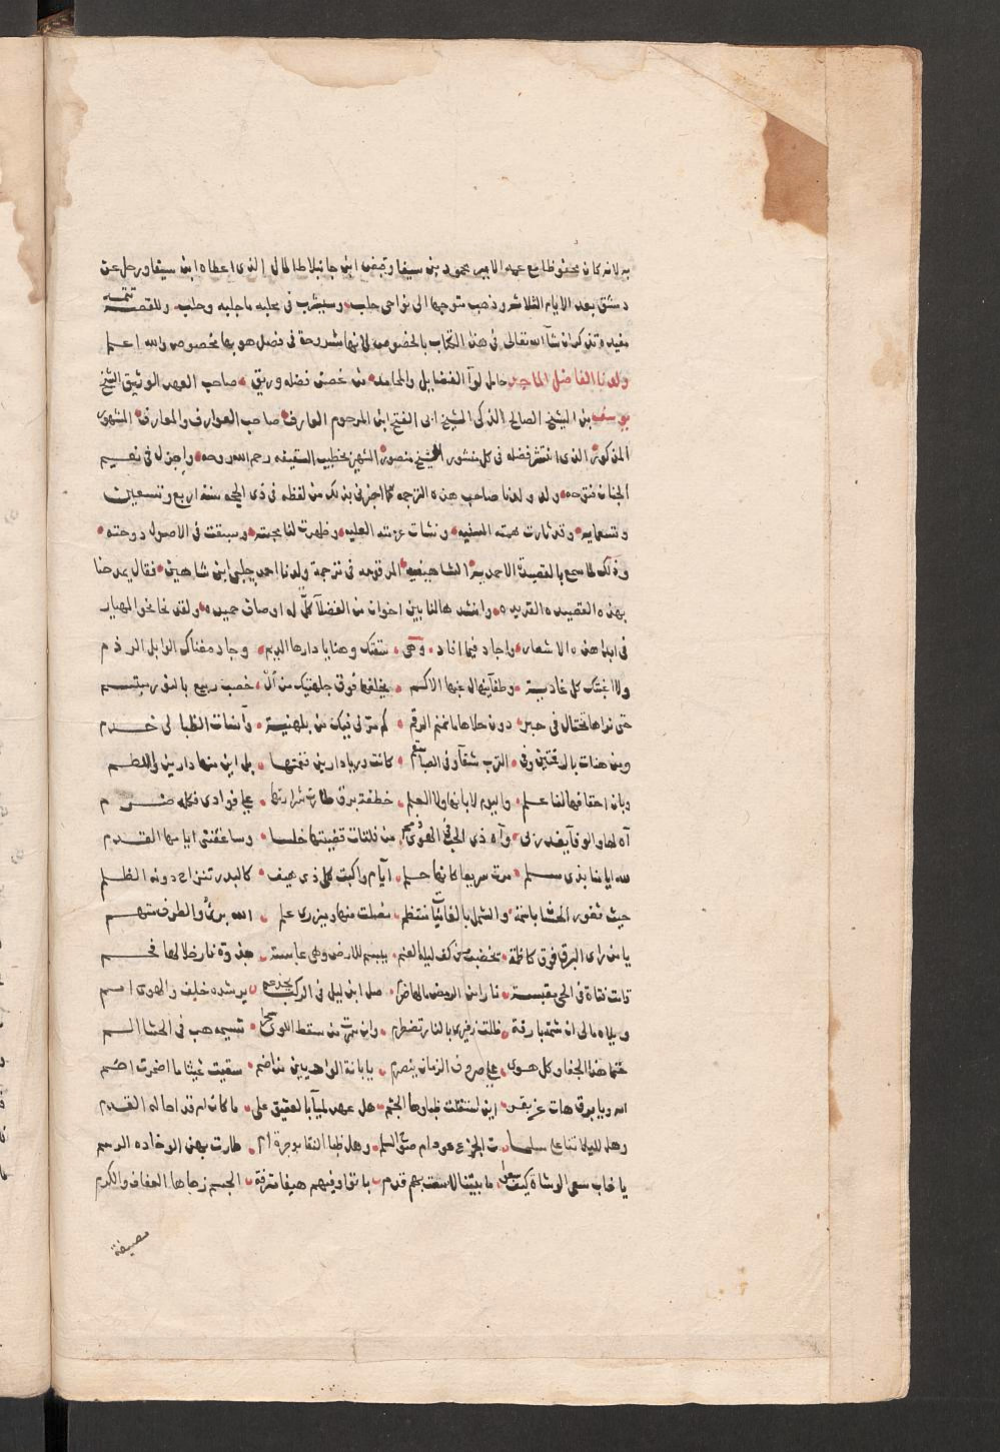 به لانه كان محفوظا مع عمه الامير محمود بن سيفا وقبض ابن جانبلاط المال الذى اعطاه ابن سيفا ورحل عن
دمشق بعد الايام الثلاثه وذهب متوجها الى نواحى حلب وسيشرب فى محلبه ما جلبه وحلب وللقصة تتمة
مفيدة تذكر ان شآ الله تعالى فى هذا الكتاب بالخصوص لانها مشروحة فى فصل هو بها مخصوص والله اعلم
ولدنا الفاضل الماجد حامل لوآ الفضايل والمحامد من غصن فضله وريق صاحب العهد الوثيق الشيخ
يوسف بن الشيخ الصالح الذكى الشيخ ابى الفتح ابن المرحوم العارف صاحب العوارف والمعارف المشهور
المذكور الذى انتشر فضله فى كل منشور الشيخ منصور الشهير بخطيب السقيفه رحم الله روحه واجزل فى نعيم
الجنان فتوحه ولد ولدنا صاحب هذه الترجمه كما اخبرنى بذلك من لفظه فى ذى الحجه سنة اربع وتسعين
وتسعمايه وقد ثارت همته السنيه ونشات عزمته العليه وظهرت لنا محبته وسبقت فى الاصول دوحته
وذلك لما سمع بالقصيدة الاحمدية الشاهينيه المرقومه فى ترجمة ولدنا احمد چلبى ابن شاهين فقال يمدحنا
بهذه القصيده الفريده وانشدها لنا بين اخوان من الفضلآ كل له اوصاف حميده ولقد نحا نحو المهيار
فى ابداء هذه الاشعار واجاد فيما افاد وهى سقتك وهنا يا دارها الديم وجاد مغناك الوابل الرذم
ولا اغبتك كل غادية وطفآ ينهال غبها الاكم يخلفها فوق جلهتيك من آل خصب ربيع بالنور مبتسم
حتى نراها تختال فى حبر دون حلاها ما نمنم الرقم كم مر لى فيك من بلهنية وآنسات الظبا لى خدم
وبن هنات بالرقمتين وفى الترب شفآ وفى الصبا سقم كانت دريا دارين نفحتها بل اين منها دارين واللطم
وبان احقافها لنا علم واليوم لا بانها ولا العلم خطفة برق طارت شرارتها على فوادى فكله ضرم
آه لها والوفآ يغدر بى وآه ذى الحب فى الهوى من فلتات قضيتها خلسا وساعفتنى ايامها القدم
لله ايامنا بذى سلم مرت سريعا كانها حلم ايام واكبت كل ذى هيف كالبدر تنزاح دونه الظلم
حيث ثغور الحشا باسمة والشمل بالغانيات منتظم الله برئ والطرف متهم
يا من راى البرق فوق كاظمة يبسم للارض وهى عابسة جذوة نار خلالها فحم
باتت فتاة فى الحى مقبسة يرشده خلب والهوى امم
ويلاه مالى ان شمت بارقة ظلت زفيرى بالنار تضطرم نسيمه هب فى الحشا الم
حتما هذا الجفا وكل هوى على صروف الزمان ينصرم يا بانة الواهديين من اضم سقيت غيثا ما اخضرت اضم
ايه ويا برق هات عن اين استقلت ظباوها الجثم هل عهد لميآ بالعقيق على ما كان ام قد احاله القدم
وهل ليلاتنا على سلمات الجزع عود ام صوح السلم طارت بهن الوخاده الرسم
يا خاب سعى الوشاة كيف سعى ما بيننا لا سعت بهم قدم باتوا وفيهم هيفا مترفة الجسم زهاها العفاف والكرم